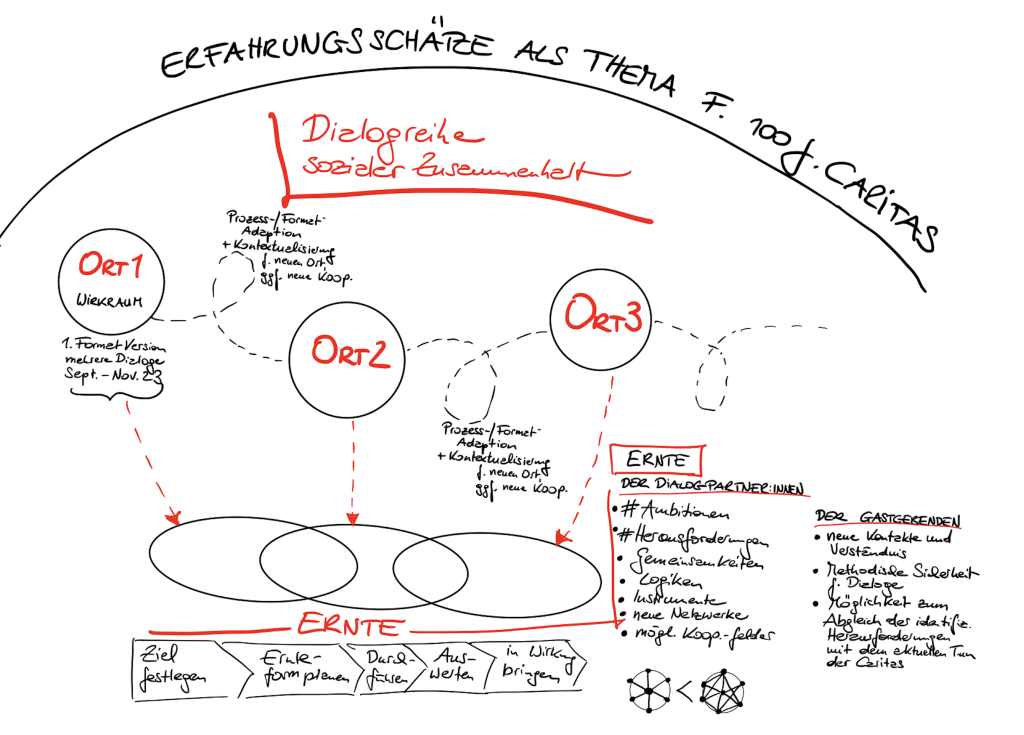 ERFAHRUNGSSCHÄTZE ALS THEMA F. 100 J. CARITAS
Dialogreihe
sozialer Zusammenhalt
Prozess-/Format-
Adaption
+ Kontextualisierung
f. neuen Ort,
ggf. neue Koop.
ORT 1
WIRKRAUM
1. Format Version
mehrere Dialoge
Sept. – Nov. 23
ORT 2
ORT 3
Prozess-/Format-
Adaption
+ Kontextualisierung
f. neuen Ort,
ggf. neue Koop.
ERNTE
DER DIALOG-PARTNER:INNEN
• # Ambitionen
• # Herausforderungen
• Gemeinsamkeiten
• Logiken
• Instrumente
• neue Netzwerke
• mögl. Koop.-felder
DER GASTGEBENDEN
• neue Kontakte und
Verständnis
• Methodische Sicherheit
f. Dialoge
• Möglichkeit zum
Abgleich der identifiz.
Herausforderungen
mit dem aktuellen Tun
der Caritas
ERNTE
Ziel
festlegen
Ernte-
form planen
Durch-
führen
Aus-
werten
in Wirkung
bringen
<